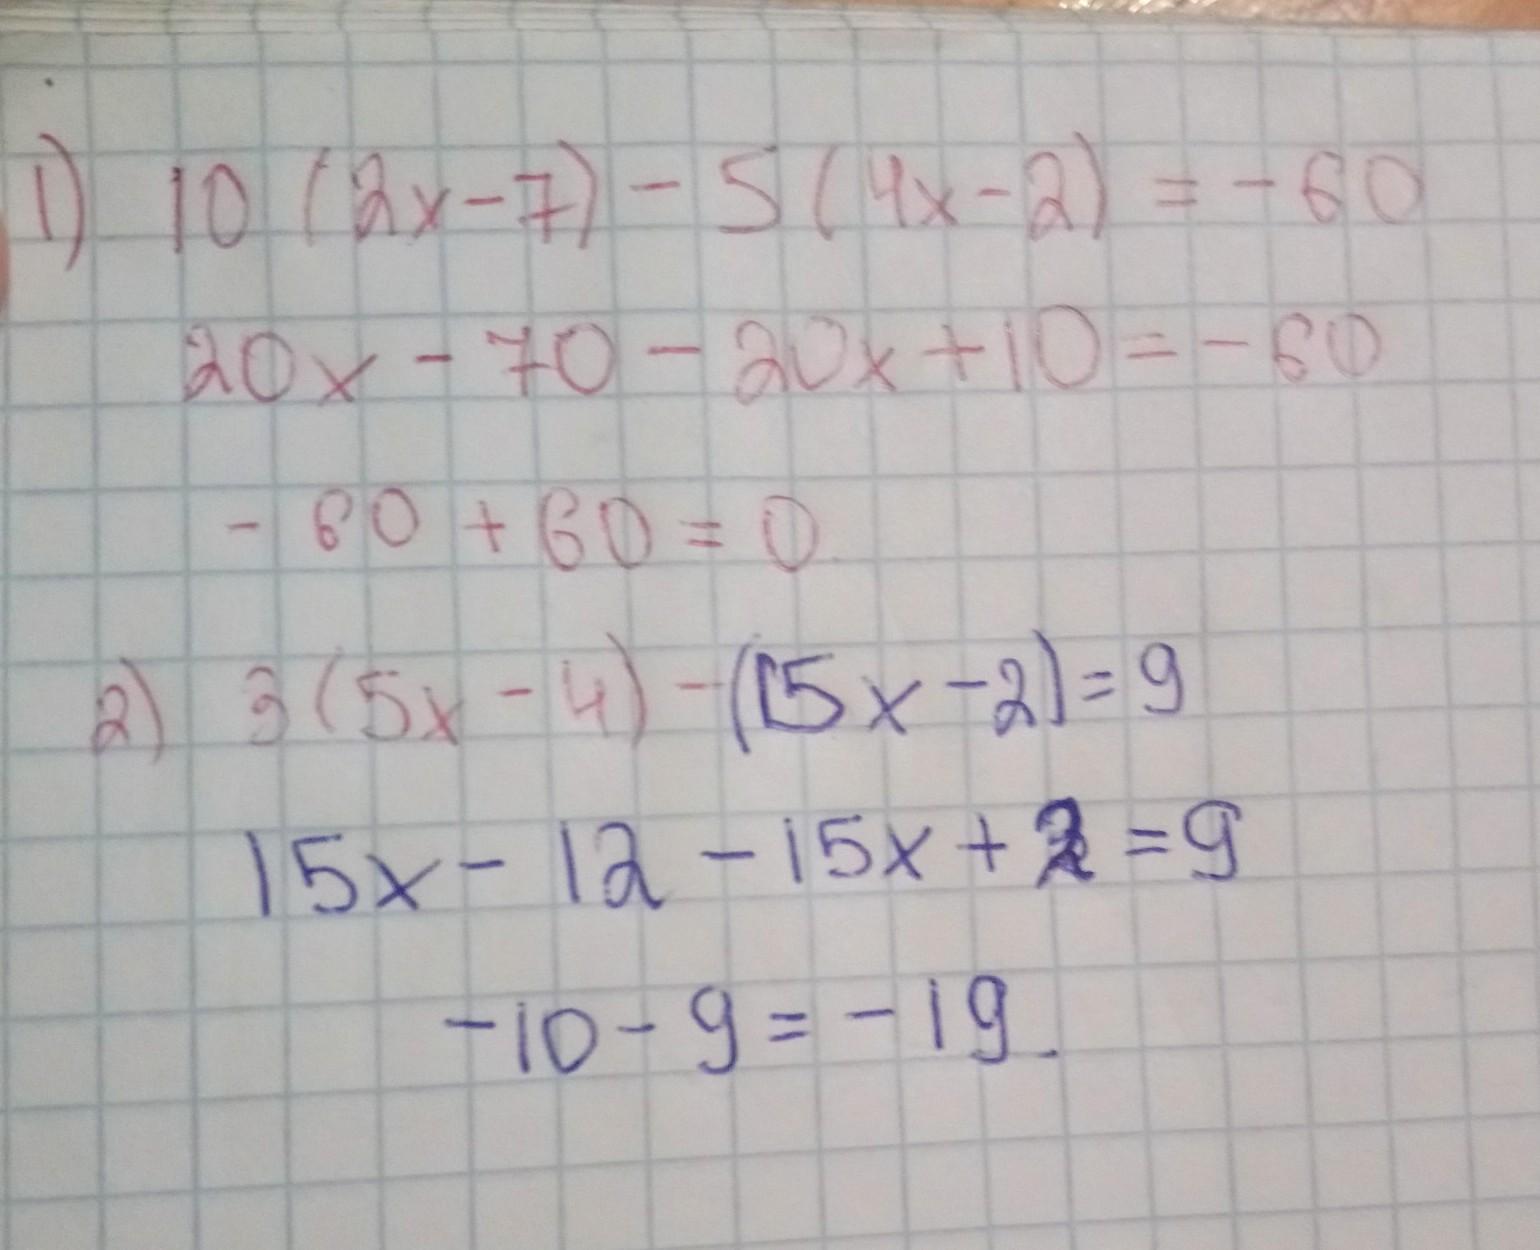 1) 10 (2x-7) - 5 (4x-2) = -60
20x - 70 - 20x + 10 = -60
- 60 + 60 = 0
2) 3(5x - 4) - (15x - 2) = 9
15x - 12 - 15x + 2 = 9
-10 - 9 = -19.